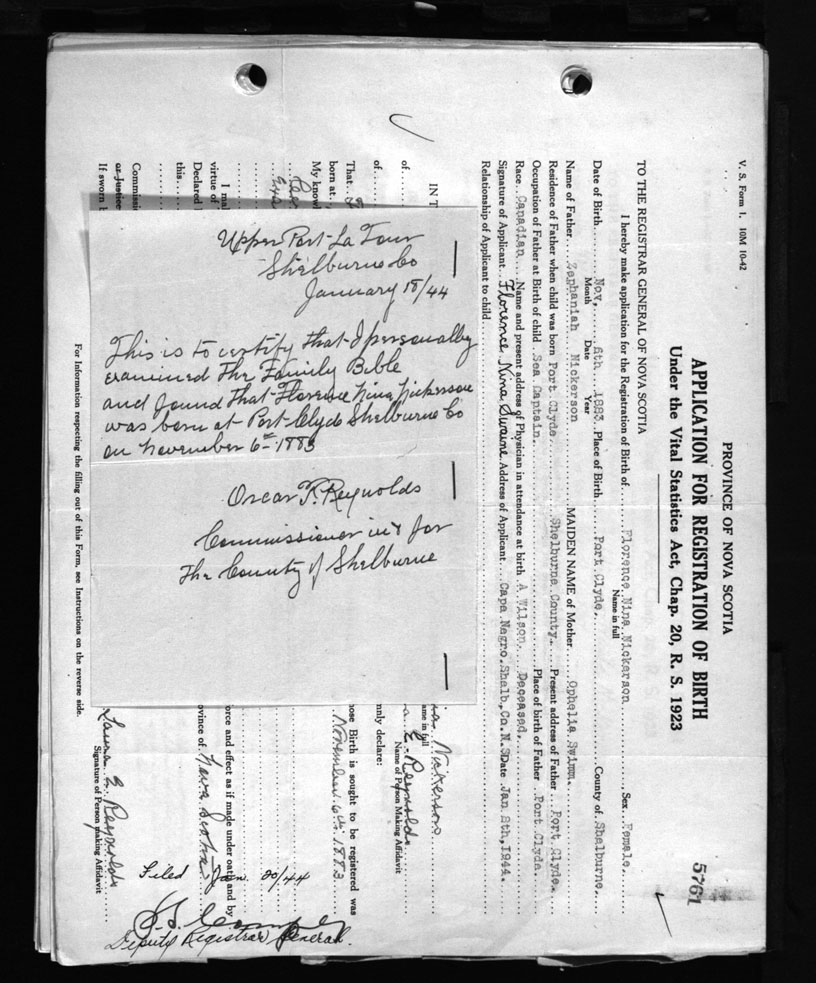 V. S. Form 1. 10M 10-42
PROVINCE OF NOVA SCOTIA
5761
APPLICATION FOR REGISTRATION OF BIRTH
Under the Vital Statistics Act, Chap. 20, R. S. 1923
TO THE REGISTRAR GENERAL OF NOVA SCOTIA
I hereby make application for the Registration of Birth of Florence Nina Nickerson Sex Female.
Name in full
Date of Birth Nov. 6th 1883 Place of Birth Port Clyde. County of Shelburne.
Month Date Year
Name of Father Zephaniah Nickerson MAIDEN NAME of Mother Ophelia Swimm.
Residence of Father when child was born Port Clyde Shelburne County. Present address of Father Port Clyde.
Occupation of Father at Birth of child Sea Captain. Place of birth of Father Port Clyde
Race Canadian Name and present address of Physician in attendance at birth A Wilson. Deceased.
Signature of Applicant Florence Nina Swaine Address of Applicant Cape Negro. Shelb. Co. N. S Date Jan 8th, 1944.
Relationship of Applicant to child
IN T
of Nickerson
ame in full
of E. Reynolds
Name of Person Making Affidavit
mnly declare:
That
hose Birth is sought to be registered was
born at November 6th 1883
My knowl
I mal
orce and effect as if made under oath and by
virtue of
Declared rovince of Nova Scotia
this
Filed Jan. 20/44
Commissi
or Justice Laura E Reynolds
If sworn b Signature of Person making Affidavit
Deputy Registrar General.
For Information respecting the filling out of this Form, see Instructions on the reverse side.
Upper Port La Tour
Shelburne Co
January 18/44
This is to certify that I personally
examined The Family Bible
and found That Florence Nina Nickerson
was born at Port Clyde Shelburne Co
on November 6th 1883
Oscar F. Reynolds
Commissioner in & for
The County of Shelburne